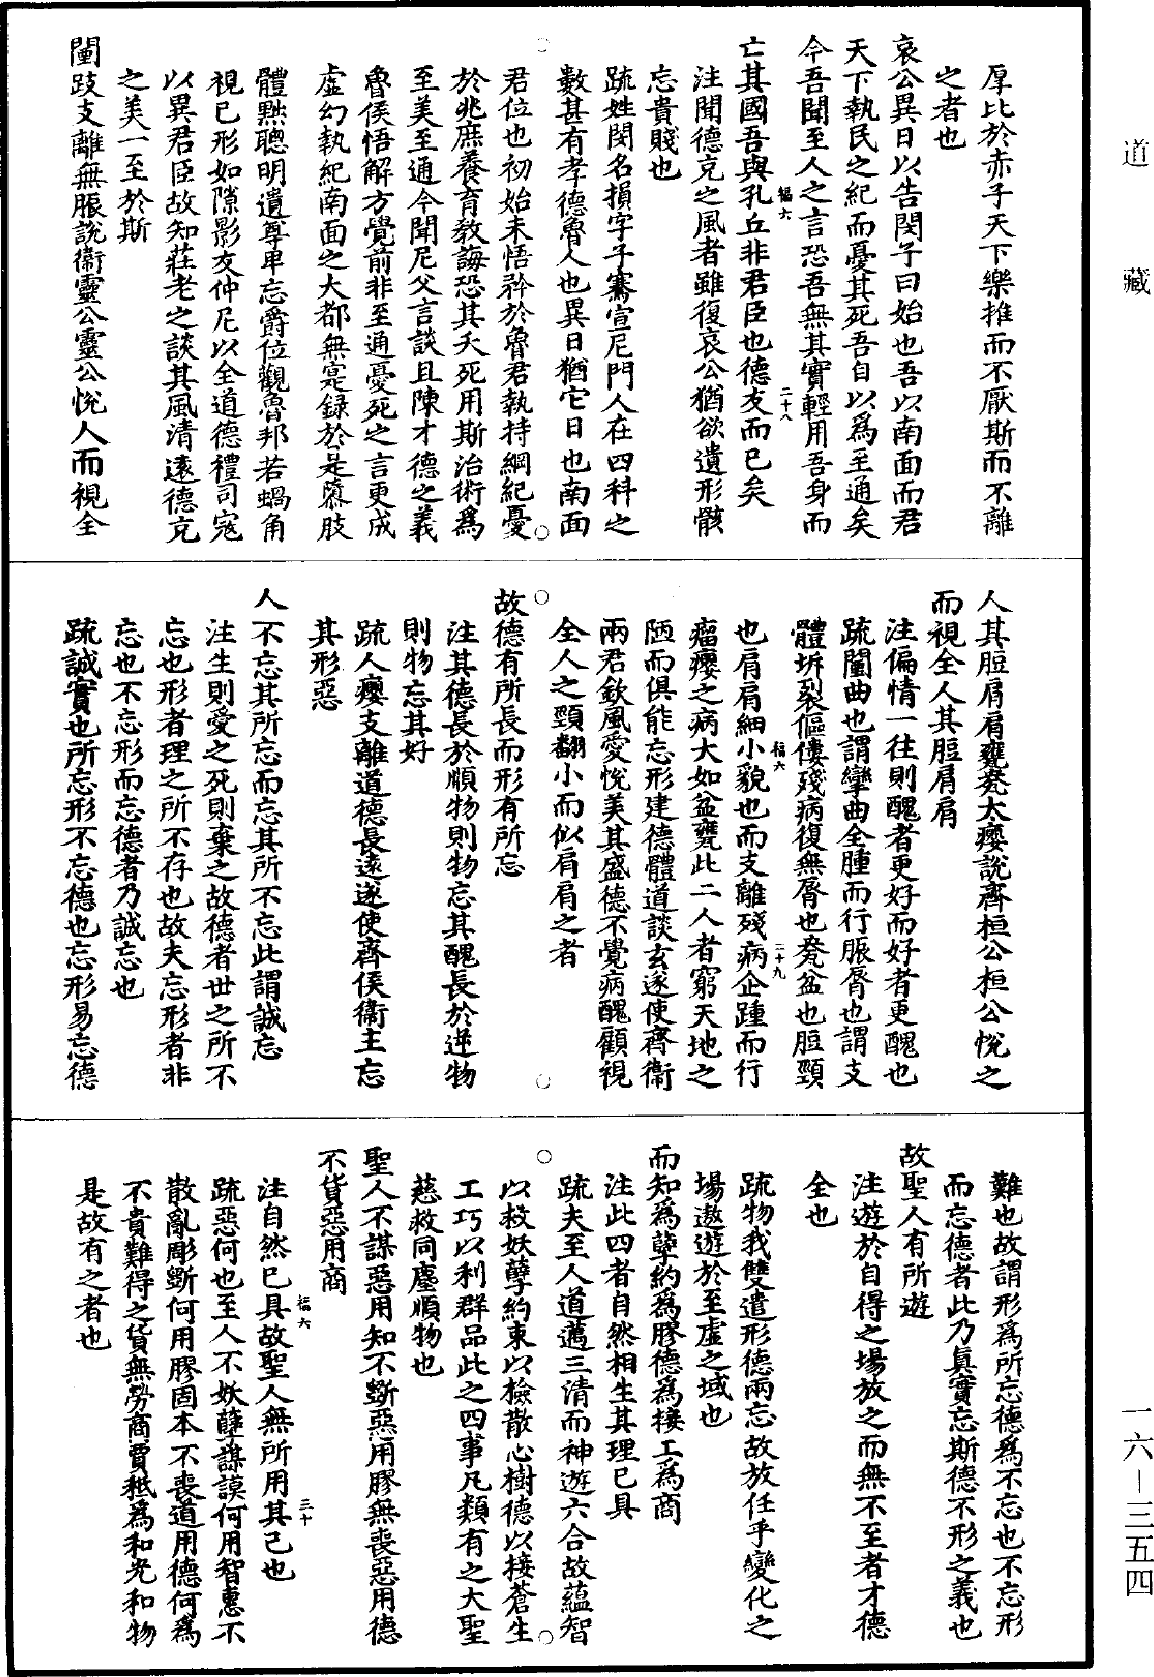 道藏
厚比於赤子天下樂推而不厭斯而不離
之者也
哀公異日以告閔子曰始也吾以南面而君
天下執民之紀而憂其死吾自以爲至通矣
今吾聞至人之言恐吾無其實輕用吾身而
福六
二十八
亡其國吾與孔丘非君臣也德友而已矣
注聞德充之風者雖復哀公猶欲遺形骸
忘貴賤也
疏姓閔名損字子騫宣尼門人在四科之
數甚有孝德魯人也異日猶它日也南面
君位也初始未悟矜於魯君執持綱紀憂
於兆庶養育敎誨恐其夭死用斯治術爲
至美至通今聞尼父言談且陳才德之義
魯侯悟解方覺前非至通憂死之言更成
虛幻執紀南面之大都無寔録於是隳肢
體黜聰明遺尊卑忘爵位觀魯邦若蝸角
視已形如隙影友仲尼以全道德禮司寇
以異君臣故知莊老之談其風清遠德充
之美一至於斯
闉跂支離無脤說衞靈公靈公悅人而視全
人其脰肩肩甕㼜大癭說齊桓公桓公悅之
而視全人其脰肩肩
注偏情一往則醜者更好而好者更醜也
疏闉曲也謂攣曲全腫而行脤脣也謂支
體坼裂傴僂殘病復無脣也㼜盆也脰頸
福六
二十九
也肩肩細小貌也而支離殘病企踵而行
瘤癭之病大如盆甕此二人者窮天地之
陋而俱能忘形建德體道談玄遂使齊衞
兩君欽風愛悅美其盛德不覺病醜顧視
全人之頸翻小而似肩肩之者
故德有所長而形有所忘
注其德長於順物則物忘其醜長於逆物
則物忘其好
疏人癭支離道德長遠遂使齊侯衞主忘
其形惡
人不忘其所忘而忘其所不忘此謂誠忘
注生則愛之死則棄之故德者世之所不
忘也形者理之所不存也故夫忘形者非
忘也不忘形而忘德者乃誠忘也
疏誠實也所忘形不忘德也忘形易忘德
難也故謂形爲所忘德爲不忘也不忘形
而忘德者此乃眞實忘斯德不形之義也
故聖人有所遊
注遊於自得之場放之而無不至者才德
全也
疏物我雙遣形德兩忘故放任乎變化之
場遨遊於至虛之域也
而知爲孽約爲膠德爲接工爲商
注此四者自然相生其理已具
疏夫至人道邁三清而神遊六合故蘊智
以救妖孽約束以檢散心樹德以接蒼生
工巧以利群品此之四事凡類有之大聖
慈救同塵順物也
聖人不謀惡用知不斲惡用膠無喪惡用德
不貨惡用商
福六
三十
注自然已具故聖人無所用其己也
疏惡何也至人不妖孽謀謨何用智惠不
散亂彫斲何用膠固本不喪道用德何爲
不貴難得之貨無勞商賈秪爲和光和物
是故有之者也
一六—三五四